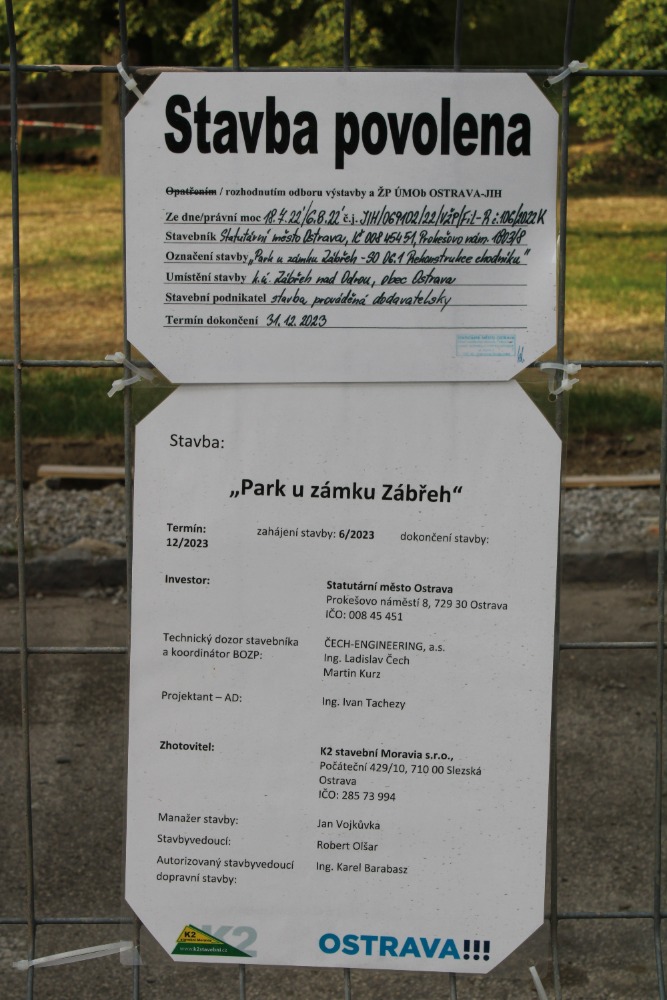 Stavba povolena
Opatřením / rozhodnutím odboru výstavby a ŽP ÚMOb OSTRAVA-JIH
Ze dne/právní moc 18.7.22/6.8.22 č.j. JIH/069102/22/VŽP/Fil-R č.106/2022 K
Stavebník Statutární město Ostrava, IČ 00845451, Prokešovo nám. 1803/8
Označení stavby „Park u zámku Zábřeh - SO 06.1 Rekonstrukce chodníku"
Umístění stavby k.ú. Zábřeh nad Odrou, obec Ostrava
Stavební podnikatel stavba prováděná dodavatelsky
Termín dokončení 31.12.2023
Stavba:
„Park u zámku Zábřeh“
Termín: zahájení stavby: 6/2023 dokončení stavby:
12/2023
Investor: Statutární město Ostrava
Prokešovo náměstí 8, 729 30 Ostrava
IČO: 008 45 451
Technický dozor stavebníka ČECH-ENGINEERING, a.s.
a koordinátor BOZP: Ing. Ladislav Čech
Martin Kurz
Projektant – AD: Ing. Ivan Tachezy
Zhotovitel: K2 stavební Moravia s.r.o.,
Počáteční 429/10, 710 00 Slezská
Ostrava
IČO: 285 73 994
Manažer stavby: Jan Vojkůvka
Stavbyvedoucí: Robert Olšar
Autorizovaný stavbyvedoucí Ing. Karel Barabasz
dopravní stavby:
K2 K2
www.k2stavebni.cz
OSTRAVA!!!